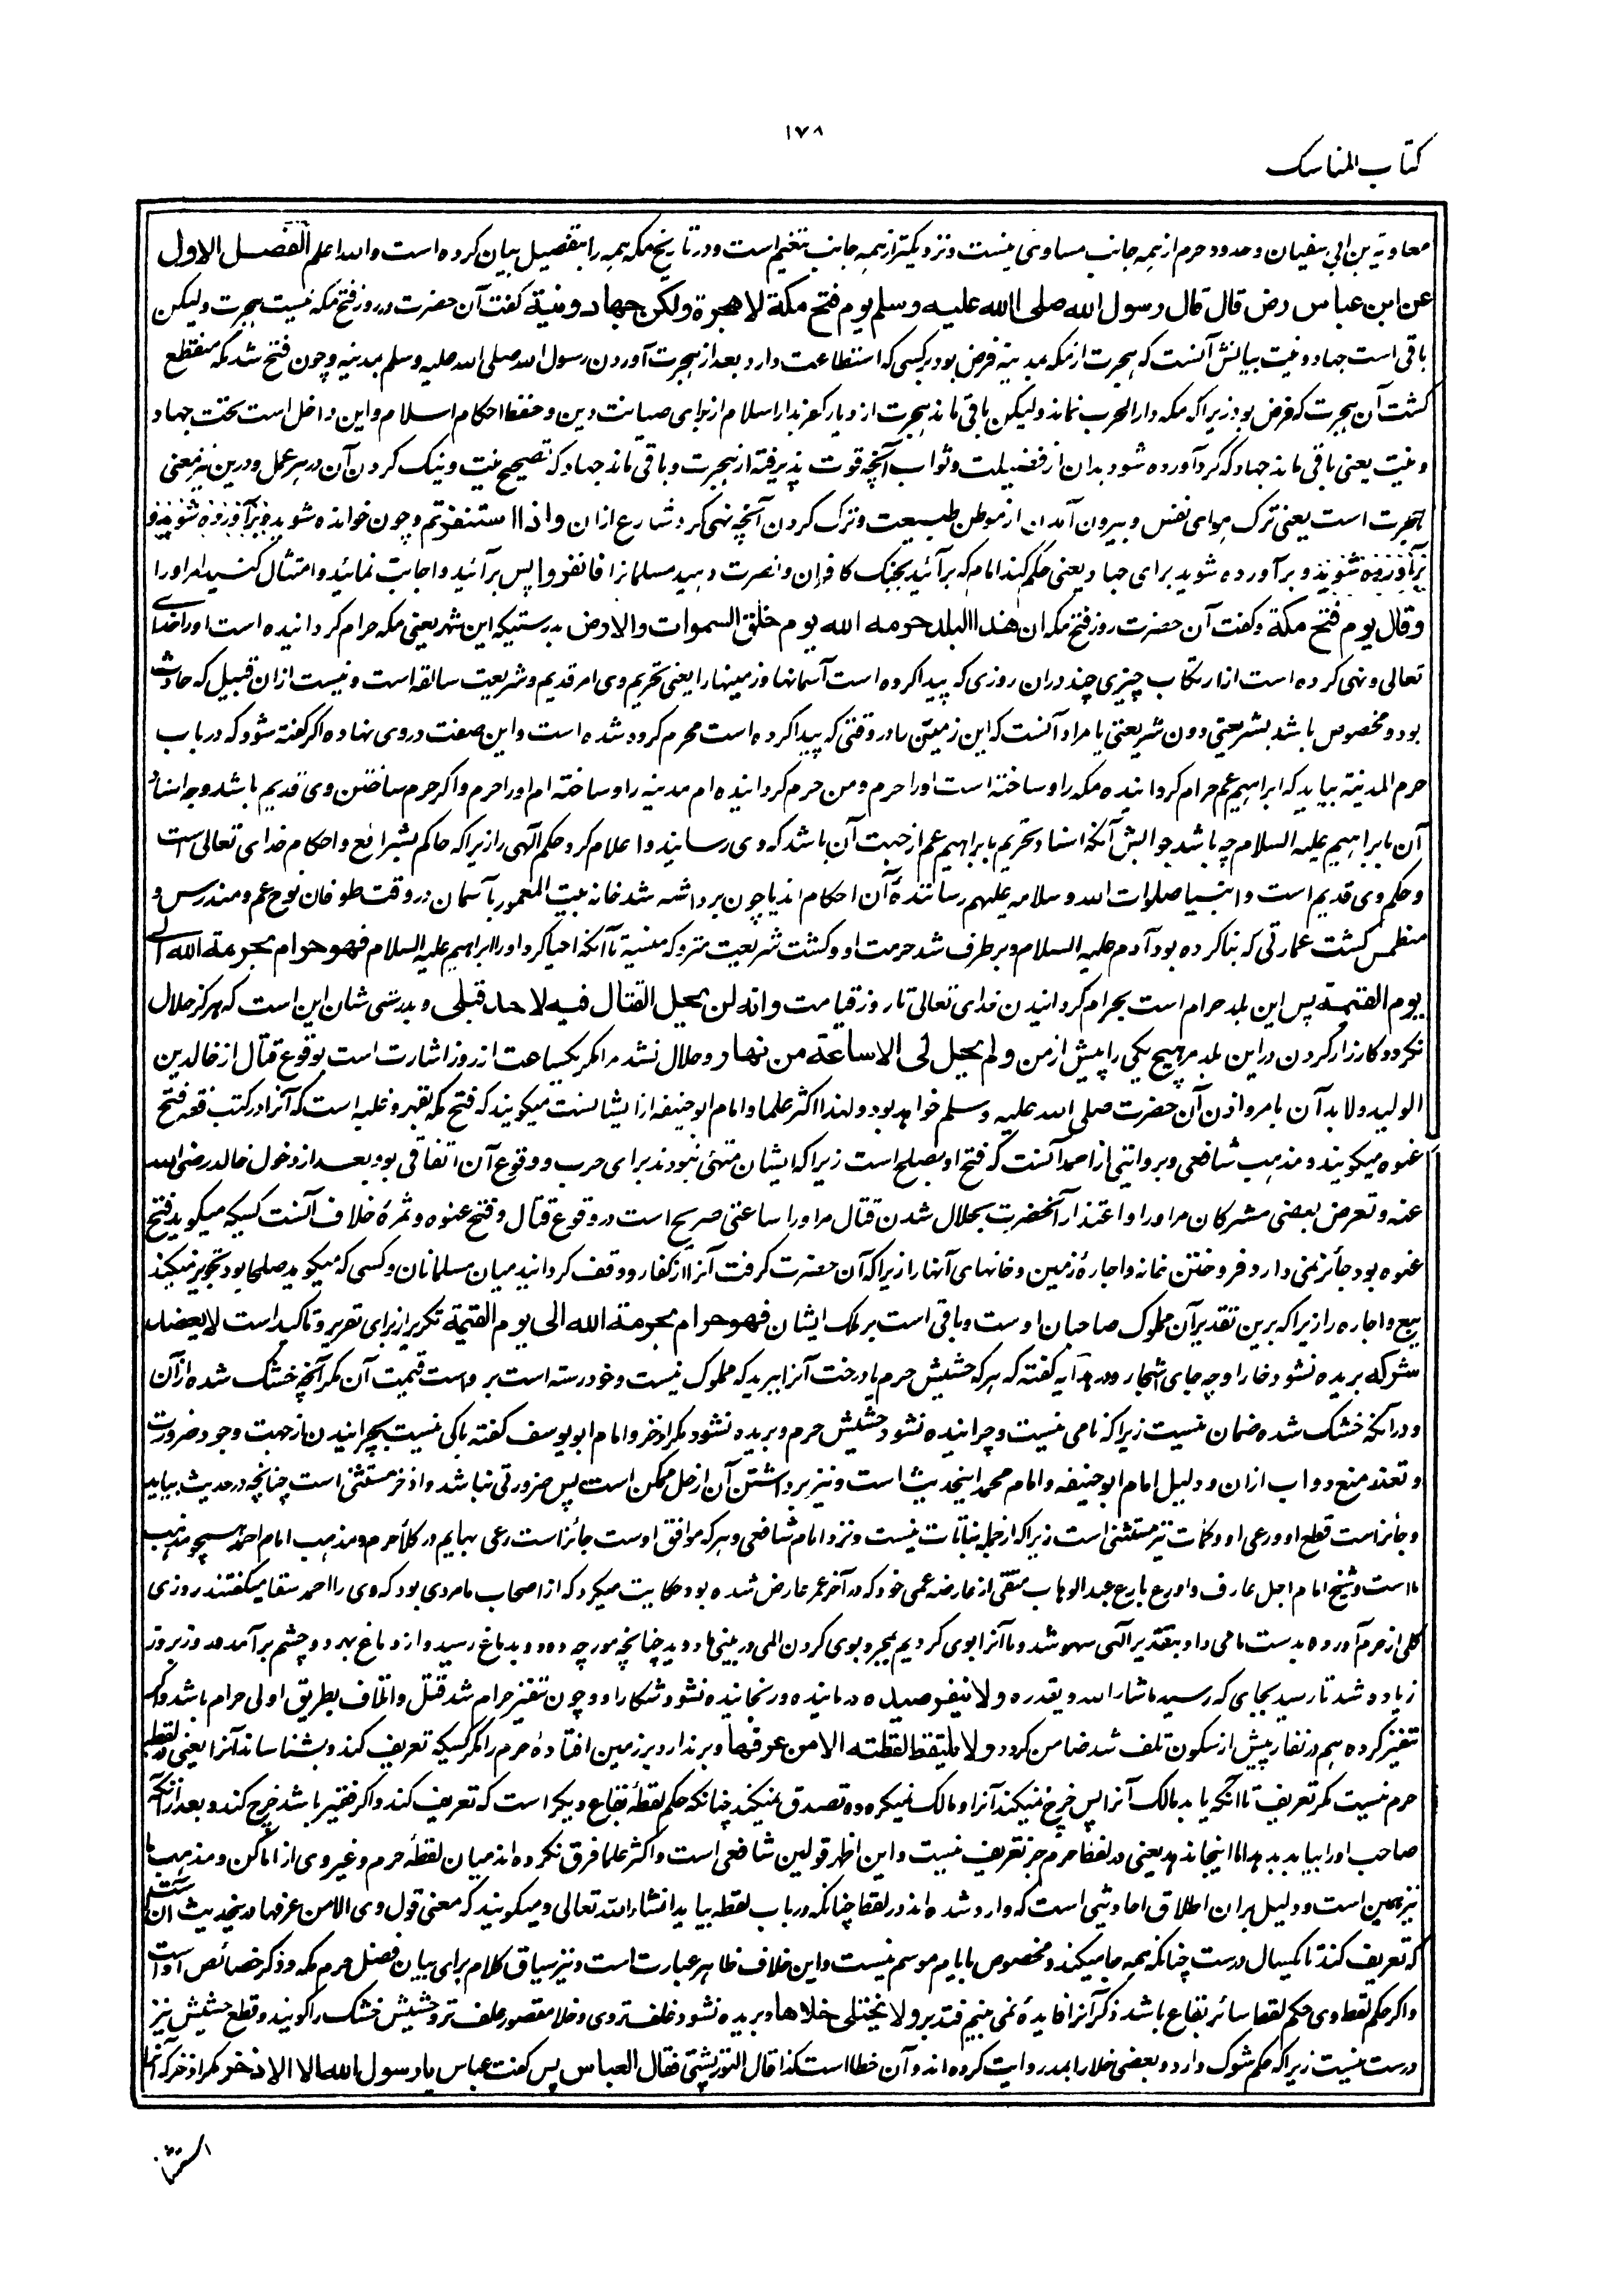 ۱۷۸
کتاب المناسک
معاویه بن ابی سفیان و حدود حرم از همه جانب مساوی نیست و نزدیکتر از همه جانب تنعیم است و در تاریخ مکه همه را بتفصیل بیان کرده است والله اعلم الفصل الاول
عن ابن عباس رض قال قال رسول الله صلی الله علیه وسلم یوم فتح مکة لا هجرة ولکن جهاد ونیة گفت آن حضرت در روز فتح مکه نیست هجرت ولیکن
باقی است جهاد و نیت بیانش آنست که هجرت از مکه بمدینه فرض بود بر کسی که استطاعت دارد بعد از هجرت آوردن رسول الله صلی الله علیه وسلم بمدینه و چون فتح شد مکه منقطع
گشت آن هجرت که فرض بود زیرا که مکه دار الحرب نماند ولیکن باقی ماند هجرت از دیار کفر بدار اسلام از برای صیانت دین و حفظ احکام اسلام و این داخل است تحت جهاد
و نیت یعنی باقی ماند جهاد که گرد آورده شود بدان از فضیلت و ثواب آنچه فوت پذیرفته از هجرت و باقی ماند جهاد که تصحیح نیت و نیک کردن آن در هر عمل و درین نیز معنی
هجرت است یعنی ترک هوای نفس و بیرون آمدن از موطن طبیعت و ترک کردن آنچه نهی کرد شارع ازان واذا استنفرتم و چون خوانده شوید و برآورده شوید و
برآورده شوید و برآورده شوید برای جهاد یعنی حکم کند امام که برآئید بجنگ کافران و نصرت دهید مسلمانرا فانفروا پس برآئید و اجابت نمائید و امتثال کنید امر او را
وقال یوم فتح مکة و گفت آن حضرت روز فتح مکه ان هذا البلد حرمه الله یوم خلق السموات والارض بدرستیکه این شهر یعنی مکه حرام گردانیده است او را خدای
تعالی و نهی کرده است از ارتکاب چیزی چند دران روزی که پیدا کرده است آسمانها و زمینها را یعنی تحریم وی امر قدیم و شریعت سالفه است و نیست ازان قبیل که حادث
بود و مخصوص باشد بشریعتی دون شریعتی یا مراد آنست که این زمین را در وقتی که پیدا کرده است محرم کرده شده است و این صفت در وی نهاده اگر گفته شود که در باب
حرم المدینة بیاید که ابراهیم عم حرام گردانیده مکه را و ساخته است او را حرم و من حرم گردانیده ام مدینه را و ساخته ام او را حرم و اگر حرم ساختن وی قدیم باشد وجه اسناد
آن بابراهیم علیه السلام چه باشد جوابش آنکه اسناد تحریم بابراهیم عم از جهت آن باشد که وی رسانید و اعلام کرد حکم الهی را زیرا که حاکم بشرائع و احکام خدای تعالی است
و حکم وی قدیم است و انبیا صلوات الله وسلامه علیهم رسانندۀ آن احکام اند یا چون برداشته شد خانه بیت المعمور بآسمان در وقت طوفان نوح عم و مندرس و
منطمس گشت عمارتی که بنا کرده بود آدم علیه السلام و بر طرف شد حرمت او و گشت شریعت متروکه منسیة تا آنکه احیا کرد او را ابراهیم علیه السلام فهو حرام بحرمة الله الی
یوم القیمة پس این بلد حرام است بحرام گردانیدن خدای تعالی تا روز قیامت وانه لن یحل القتال فیه لاحد قبلی و بدرستی شان این است که هرگز حلال
نکرده کارزار کردن در این بلد مر هیچ یکی را پیش از من ولم یحل لی الا ساعة من نهار و حلال نشد مرا مگر یکساعت از روز اشارت است بوقوع قتال از خالد بن
الولید و لابد آن بامر و اذن آن حضرت صلی الله علیه وسلم خواهد بود و لهذا اکثر علما و امام ابو حنیفه از ایشانست میگویند که فتح مکه بقهر و غلبه است که آنرا در کتب فقه فتح
عنوه میگویند و مذهب شافعی و بروایتی از احمد آنست که فتح او بصلح است زیرا که ایشان متهئی نبودند برای حرب و وقوع آن اتفاقی بود بعد از دخول خالد رضی الله
عنه و تعرض بعضی مشرکان مر او را و اعتذار آنحضرت بحلال شدن قتال مر او را ساعتی صریح است در وقوع قتال و فتح عنوه و ثمرۀ خلاف آنست کسیکه میگوید فتح
عنوه بود جائز نمی دارد فروختن خانه و اجارۀ زمین و خانهای آنها را زیرا که آن حضرت گرفت آنرا از کفار و وقف گردانید میان مسلمانان و کسی که میگوید صلحا بود تجویز میکند
بیع و اجاره را زیرا که برین تقدیر آن مملوک صاحبان اوست و باقی است بر ملک ایشان فهو حرام بحرمة الله الی یوم القیمة تکریر از برای تقریر و تاکید است لا یعضد
شوکه بریده نشود خار او چه جای اشجار و در هدایه گفته که هر که حشیش حرم یا درخت آنرا ببرید که مملوک نیست و خود رسته است بر واست قیمت آن مگر آنچه خشک شده از آن
و در آنکه خشک شده ضمان نیست زیرا که نامی نیست و چرانیده نشود حشیش حرم و بریده نشود مگر اذخر و امام ابو یوسف گفته باکی نیست بچرانیدن از جهت وجود ضرورت
و تعذر منع دواب ازان و دلیل امام ابو حنیفه و امام محمد اینحدیث است و نیز برداشتن آن از حل ممکن است پس ضرورتی نباشد و اذخر مستثنی است چنانچه در حدیث بیاید
و جائز است قطع او و رعی او و کمات نیز مستثنی است زیرا که از جمله نباتات نیست و نزد امام شافعی و هر که موافق اوست جائز است رعی بهایم در کلأ حرم و مذهب امام احمد همچو مذهب
ما است و شیخ امام اجل عارف و اورع بارع عبد الوهاب متقی از عارضه عمی خود که در آخر عمر عارض شده بود حکایت میکرد که از اصحاب ما مردی بود که وی را احمد سقا میگفتند روزی
گلی از حرم آورده بدست ما می داد بتقدیر الهی سهو شد و ما آنرا بوی کردیم بمجرد بوی کردن المی در بینی ما دوید چنانچه مورچه دود و بدماغ رسید و از دماغ بهر دو چشم برآمد و روز بروز
زیاده شد تا رسید بجای که رسید ماشاء الله و بقدره ولا ینفر صیده و رمانیده و رنجانیده نشود شکار او و چون تنفیر حرام شد قتل و اتلاف بطریق اولی حرام باشد و اگر
تنفیر کرده هم در نفار پیش از سکون تلف شد ضامن گردد ولا یلتقط لقطته الا من عرفها و برندارد بر زمین افتادۀ حرم را مگر کسیکه تعریف کند و بشناساند آنرا یعنی در لقطه
حرم نیست مگر تعریف تا آنکه یابد مالک آنرا پس خرج نمیکند آنرا و مالک نمیگردد و تصدق نمیکند چنانکه حکم لقطۀ بقاع دیگر است که تعریف کند و اگر فقیر باشد خرج کند و بعد از آنکه
صاحب او را بیابد بدهد اما اینجا ندهد یعنی در لقطۀ حرم جز تعریف نیست و این اظهر قولین شافعی است و اکثر علما فرق نکرده اند میان لقطۀ حرم و غیر وی از اماکن و مذهب ما
نیز همین است و دلیل بران اطلاق احادیثی است که وارد شده اند در لقطه چنانکه در باب لقطه بیاید انشاء الله تعالی و میگویند که معنی قول وی الا من عرفها درین حدیث آنست
که تعریف کند تا یکسال درست چنانکه همه جا میکند و مخصوص بایام موسم نیست و این خلاف ظاهر عبارت است و نیز سیاق کلام برای بیان فضل حرم مکه و ذکر خصائص اوست
و اگر حکم لقطه وی حکم لقطه سائر بقاع باشد ذکر آنرا فایدۀ نمی بینیم فتدبر ولا یختلی خلاها و بریده نشود علف تر وی و خلا مقصور علف تر و حشیش خشک را گویند و قطع حشیش نیز
درست نیست زیرا که حکم شوک دارد و بعضی خلا را بمد روایت کرده اند و آن خطا است کذا قال التورپشتی فقال العباس پس گفت عباس یا رسول الله الا الاذخر مگر اذخر که آنرا
استثنا